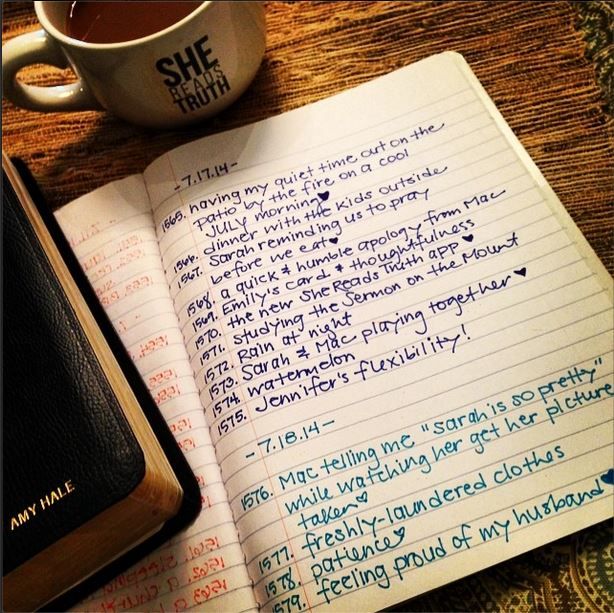 SHE
READS
TRUTH
- 7.17.14 -
1565. having my quiet time out on the
patio by the fire on a cool
JULY morning♥
1566. dinner with the kids outside
1567. Sarah reminding us to pray
before we eat♥
1568. a quick & humble apology from Mac
1569. Emily's card & thoughtfulness
1570. the new SheReadsTruth app♥
1571. studying the Sermon on the Mount
1572. Rain at night
1573. Sarah & Mac playing together♥
1574. watermelon
1575. Jennifer's flexibility!
- 7.18.14 -
1576. Mac telling me "Sarah is so pretty"
while watching her get her picture
taken♥
1577. freshly-laundered clothes
1578. patience♥
1579. feeling proud of my husband♥
AMY HALE